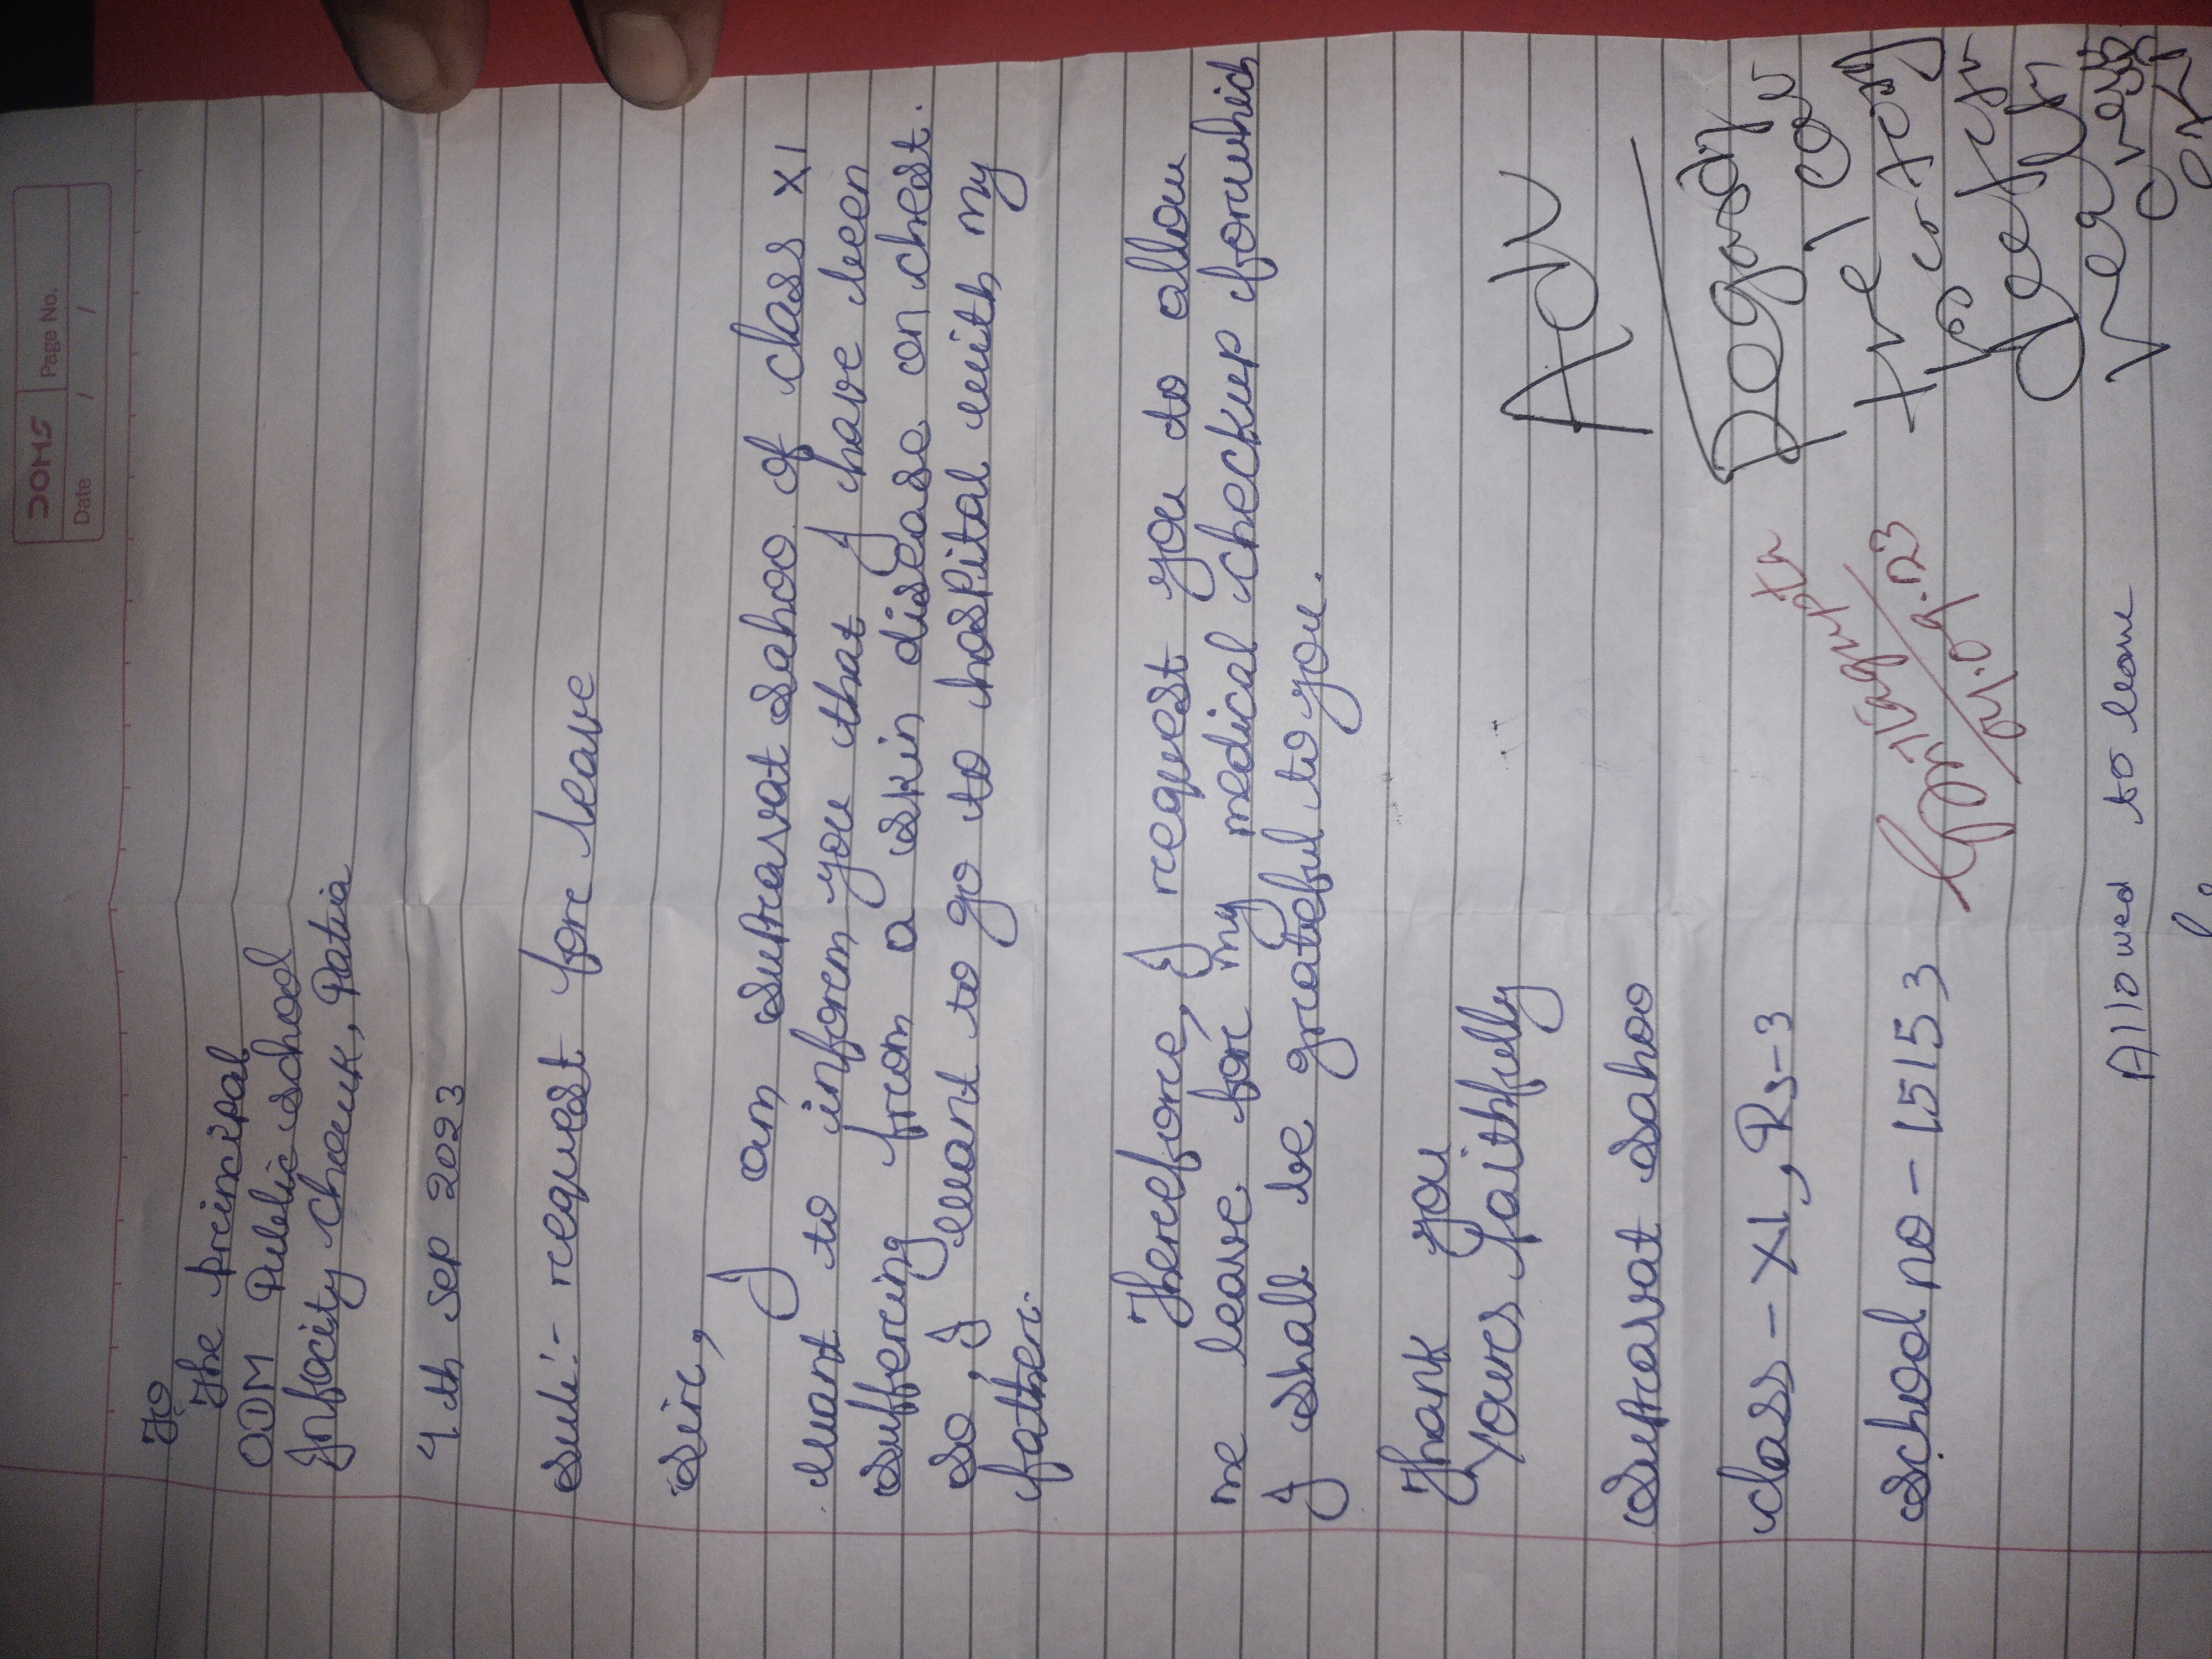 DOMS
Page No.
Date / /
To
The principal
ODM Public school
Infocity chauk, Patia
4th Sep 2023
Sub:- request fore leave
Sire,
I am suprcavat sahoo of class XI
want to inforem you that I have been
suffercing frcom a skin disease on chest.
So, I want to go to hospital with my
father.
Therceforce, I rcequest you to allow
me leave forc my medical checkup forwhich
I shall be grcateful to you.
Thank you
Yours faithfully
Suprcavat sahoo
class - XI, Rs-3
school no - 15153
Adv
04.09.23
Allowed to leave